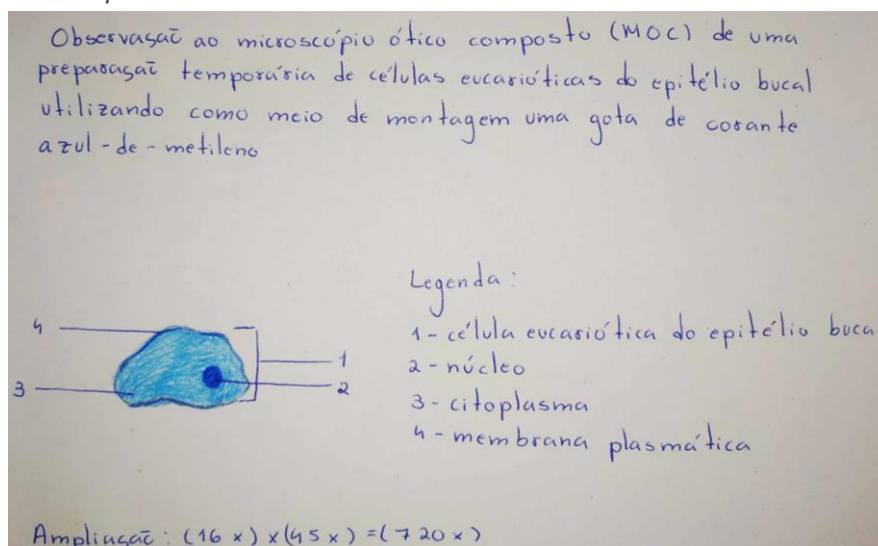 Observaçaõ ao microscópio ótico composto (MOC) de uma
preparaçaõ temporária de células eucarióticas do epitélio bucal
utilizando como meio de montagem uma gota de corante
azul-de-metileno
Legenda:
1 - célula eucariótica do epitélio buca
2 - núcleo
3 - citoplasma
4 - membrana plasmática
4
3
1
2
Ampliaçaõ: (16 x) x (45 x) = (720 x)